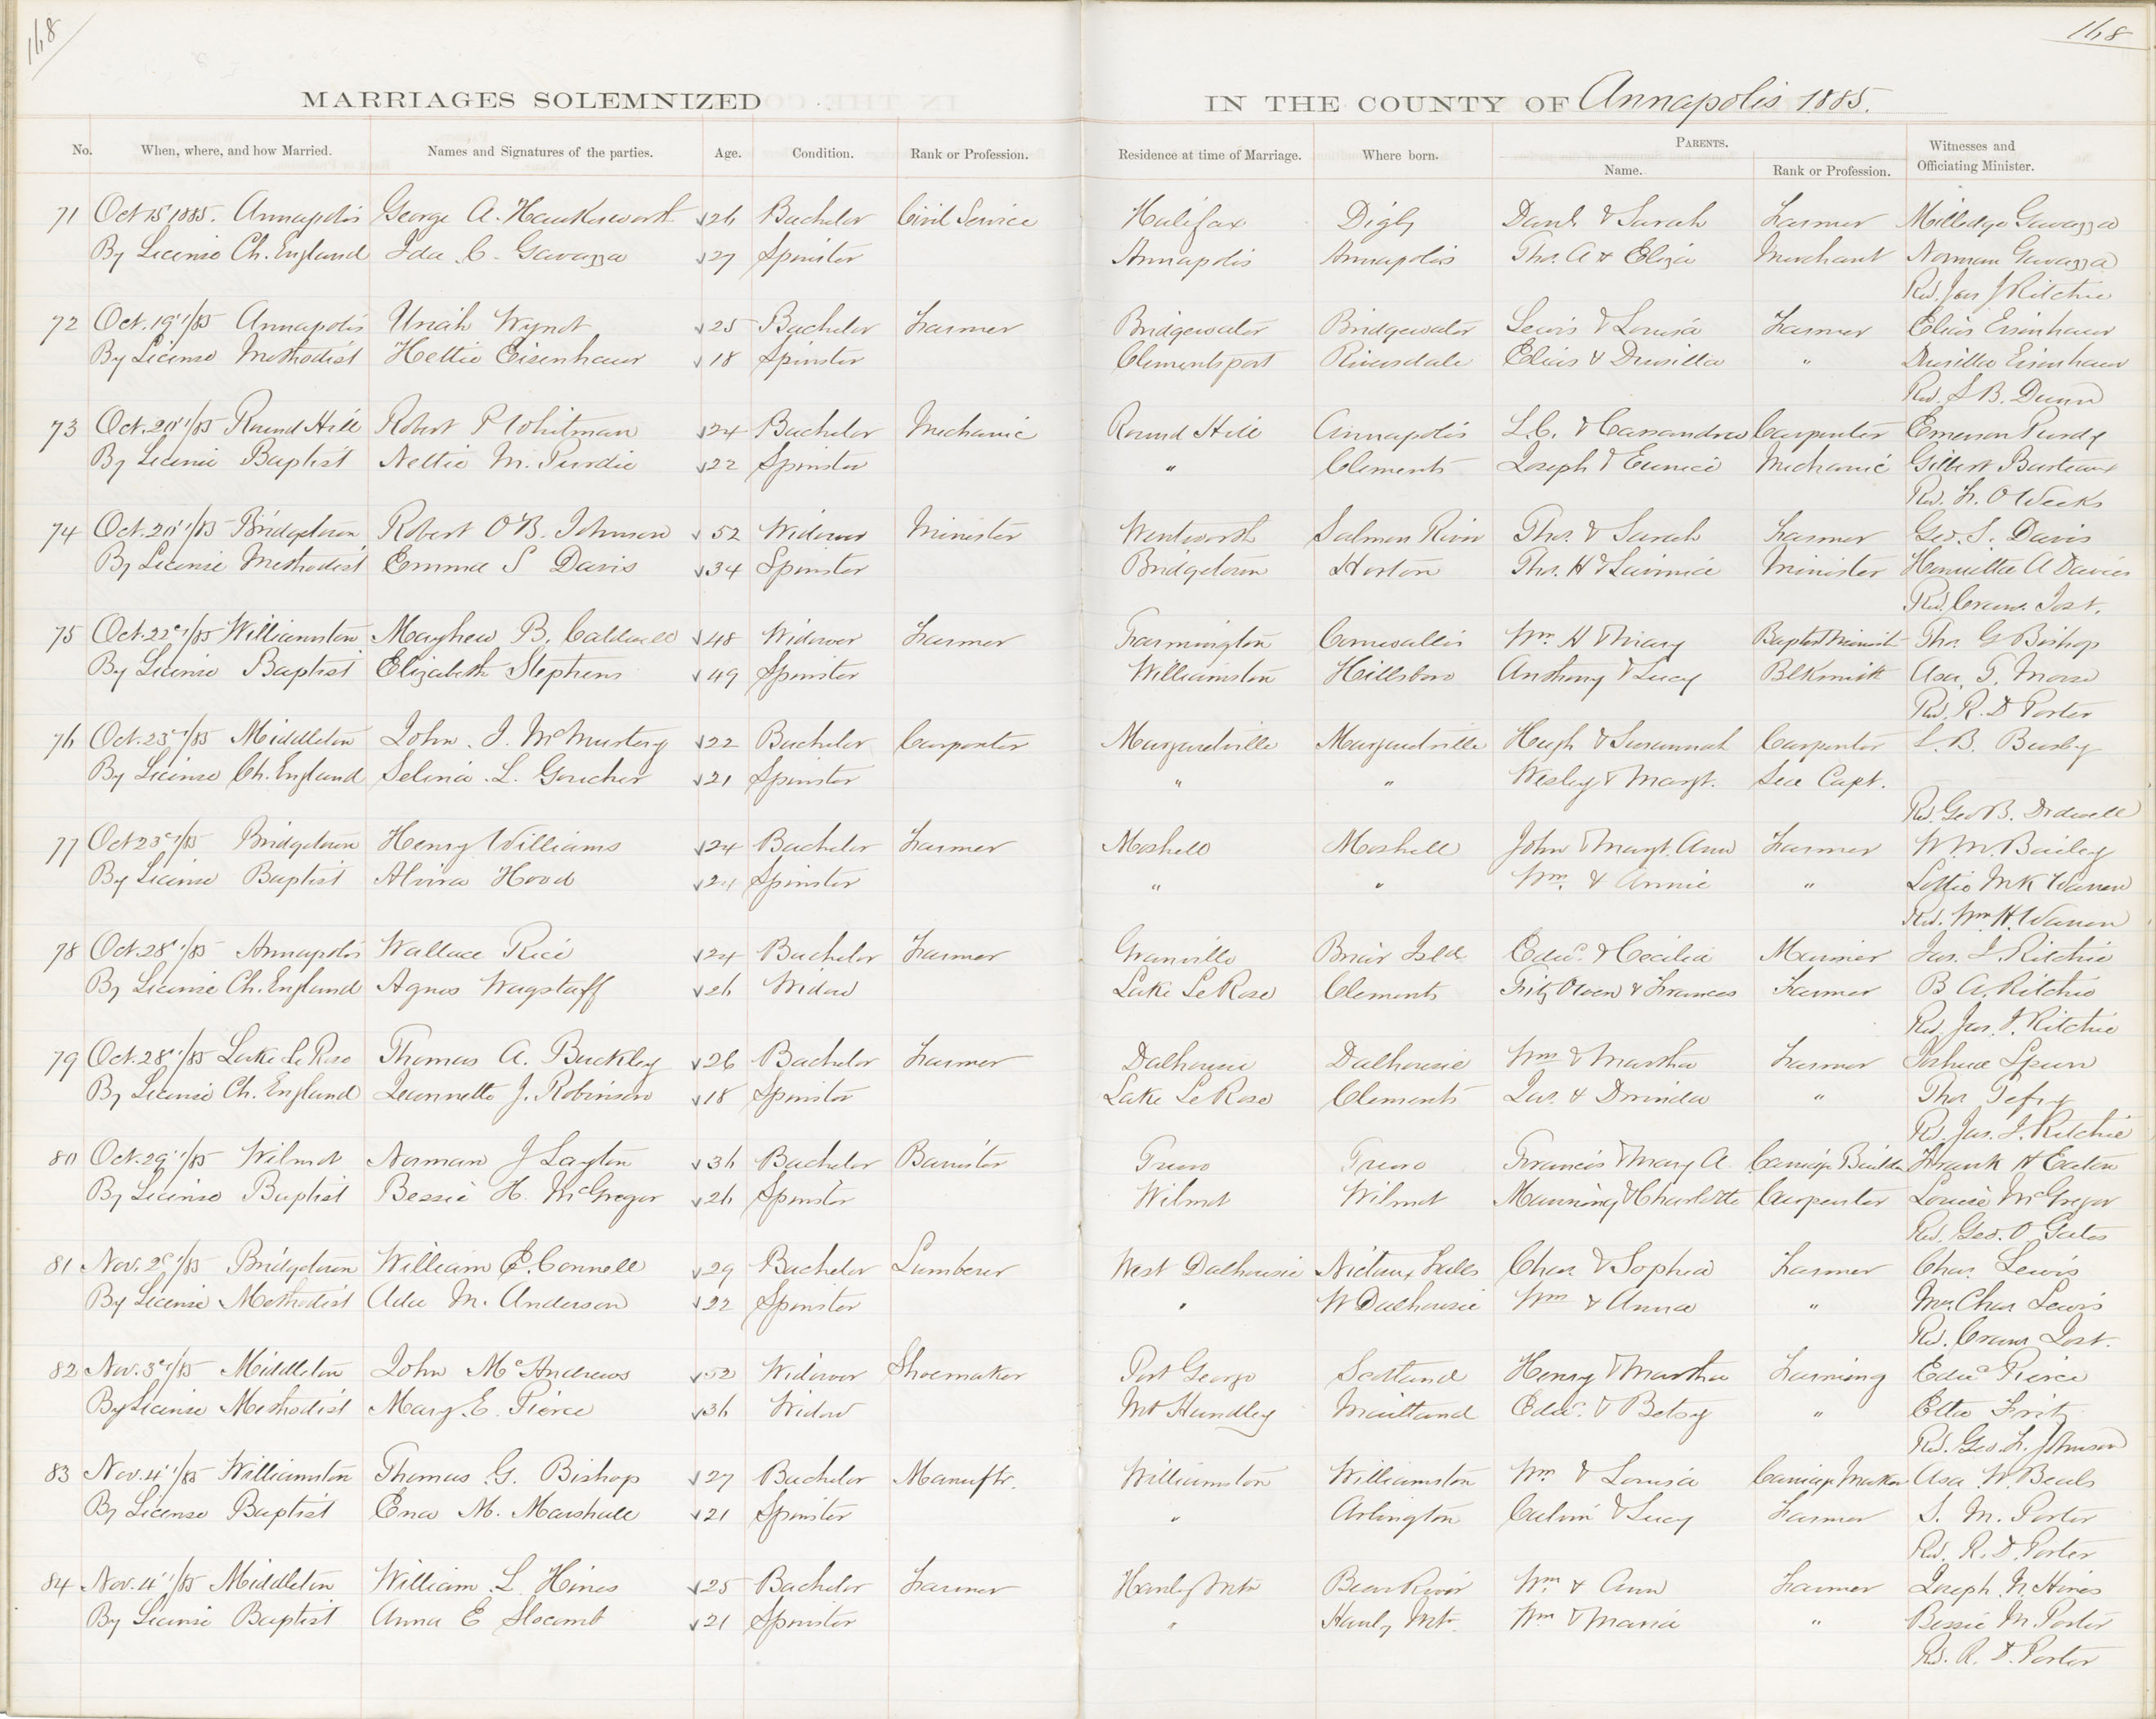 168
168
MARRIAGES SOLEMNIZED IN THE COUNTY OF Annapolis 1885.
No. When, where, and how Married. Names and Signatures of the parties. Age. Condition. Rank or Profession. Residence at time of Marriage. Where born. PARENTS. Name. Rank or Profession. Witnesses and Officiating Minister.
71 Oct 15 1885. Annapolis George A. Hawkesworth 26 Bachelor Civil Service Halifax Digby Danl. & Sarah Farmer Milledge Gavazza
By License Ch. England Ida C. Gavazza 27 Spinster Annapolis Annapolis Thos. A & Eliza Merchant Norman Gavazza
Rev. Jas J Ritchie
72 Oct. 19"/85 Annapolis Uriah Wynot 25 Bachelor Farmer Bridgewater Bridgewater Lewis & Louisa Farmer Elias Eisenhaur
By License Methodist Hettie Eisenhaur 18 Spinster Clementsport Riversdale Elias & Drusilla " Drusilla Eisenhaur
Rev. S B. Dunn
73 Oct. 20"/85 Round Hill Robert P Whitman 24 Bachelor Mechanic Round Hill Annapolis L.C. & Cassandra Carpenter Emerson Purdy
By License Baptist Nettie M. Purdie 22 Spinster " Clements Joseph & Eunice Mechanic Gilbert Burteaux
Rev. F. O Weeks
74 Oct. 20"/85 Bridgetown Robert O'B. Johnson 52 Widower Minister Wentworth Salmon River Thos. & Sarah Farmer Geo. S. Davis
By License Methodist Emma S Davis 34 Spinster Bridgetown Horton Thos. H & Minister Henrietta A Davies
Rev. Cranw. Jost.
75 Oct. 22d/85 Williamston Mayhew B. Caldwell 48 Widower Farmer Farmington Cornwallis Wm. H & Mary Baptist Minist Thos. G Bishop
By License Baptist Elizabeth Stephens 49 Spinster Williamston Hillsboro Anthony & Lucy Blksmith Asa T. Morse
Rev. R. D Porter
76 Oct. 23d/85 Middleton John. I. McMurtery 22 Bachelor Carpenter Margaretville Margaretville Hugh & Susannah Carpenter L. B. Busby
By License Ch. England Selina. L. Goucher 21 Spinster " " Wesley & Margt. Sea Capt.
Rev. Geo B. Dodwell
77 Oct 23d/85 Bridgetown Henry Williams 24 Bachelor Farmer Moshell Moshell John & Margt. Ann Farmer W. M. Bailey
By License Baptist Alvira Hood 24 Spinster " " Wm. & Annie " Lottie McK Warren
Rev. Wm. H. Warren
78 Oct. 28"/85 Annapolis Wallace Rice 24 Bachelor Farmer Granville Briar Isld Edwd. & Cecilia Mariner Jas. J. Ritchie
By License Ch. England Agnes Wagstaff 26 Widow Lake Le Rose Clements Fitz Owen & Frances Farmer B A. Ritchie
Rev. Jas. J. Ritchie
79 Oct. 28"/85 Lake Le Rose Thomas A. Buckley 26 Bachelor Farmer Dalhousie Dalhousie Wm & Martha Farmer Joshua Spurr
By License Ch. England Jeannette J. Robinson 18 Spinster Lake Le Rose Clements Jas. & Dorinda " Thos
Rev. Jas. J. Ritchie
80 Oct. 29"/85 Wilmot Norman J Layton 36 Bachelor Barrister Truro Truro Francis & Mary A. Carriage Builder Frank H Eaton
By License Baptist Bessie H. McGregor 26 Spinster Wilmot Wilmot Manning & Charlotte Carpenter Louise McGregor
Rev. Geo. O Gates
81 Nov. 2d/85 Bridgetown William E. Connell 29 Bachelor Lumberer West Dalhousie Nictaux Falls Chas & Sophia Farmer Chas. Lewis
By License Methodist Ada M. Anderson 22 Spinster " W Dalhousie Wm & Anna " Mrs. Chas Lewis
Rev. Cranw Jost.
82 Nov. 3d/85 Middleton John McAndrews 52 Widower Shoemaker Port George Scotland Henry & Martha Farming Edwd Pierce
By License Methodist Mary E. Pierce 36 Widow Mt Handley Maitland Edwd. & Betsy " Etta Fritz
Rev. Geo. F. Johnson
83 Nov. 4"/85 Williamston Thomas G. Bishop 27 Bachelor Manuftr. Williamston Williamston Wm & Louisa Carriage Maker Asa W. Beals
By License Baptist Ena M. Marshall 21 Spinster " Arlington Calvin & Lucy Farmer S. M. Porter
Rev. R. D. Porter
84 Nov. 4"/85 Middleton William L Hines 25 Bachelor Farmer Hanley Mtn Bear River Wm & Ann Farmer Joseph N. Hines
By License Baptist Anna E Slocomb 21 Spinster " Hanly Mtn. Wm & Maria " Bessie M. Porter
Rev. R. D. Porter